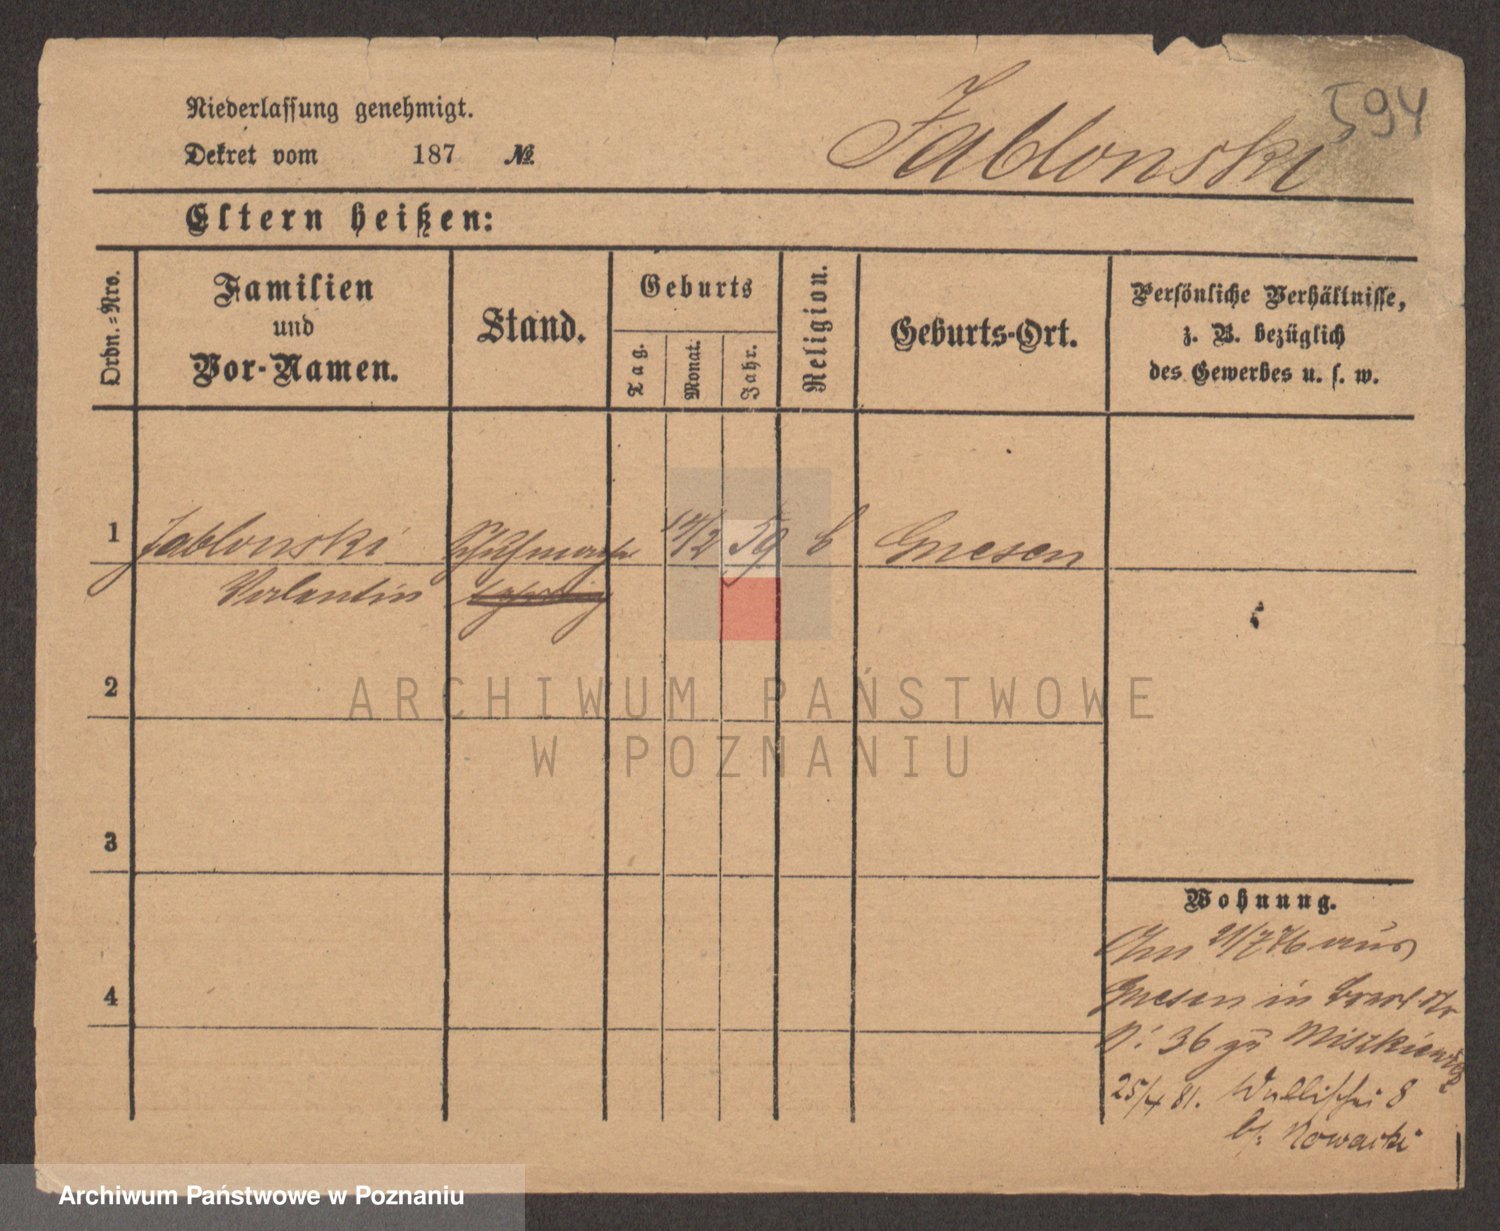 594
Niederlassung genehmigt.
Jablonski
Dekret vom 187 №
Eltern heißen:
Ordn.-Nro.
Familien
und
Vor-Namen.
Stand.
Geburts
Tag.
Monat.
Jahr.
Religion.
Geburts-Ort.
Persönliche Verhältnisse,
z. B. bezüglich
des Gewerbes u. s. w.
1 Jablonski 59 Gnesen
Valentin
2
ARCHIWUM PAŃSTWOWE
W POZNANIU
3
Wohnung.
21/7 76 aus
Gnesen in
36 zu Miszkiewicz
4
25/4 81. Wallischei 8
b/: Nowacki
Archiwum Państwowe w Poznaniu